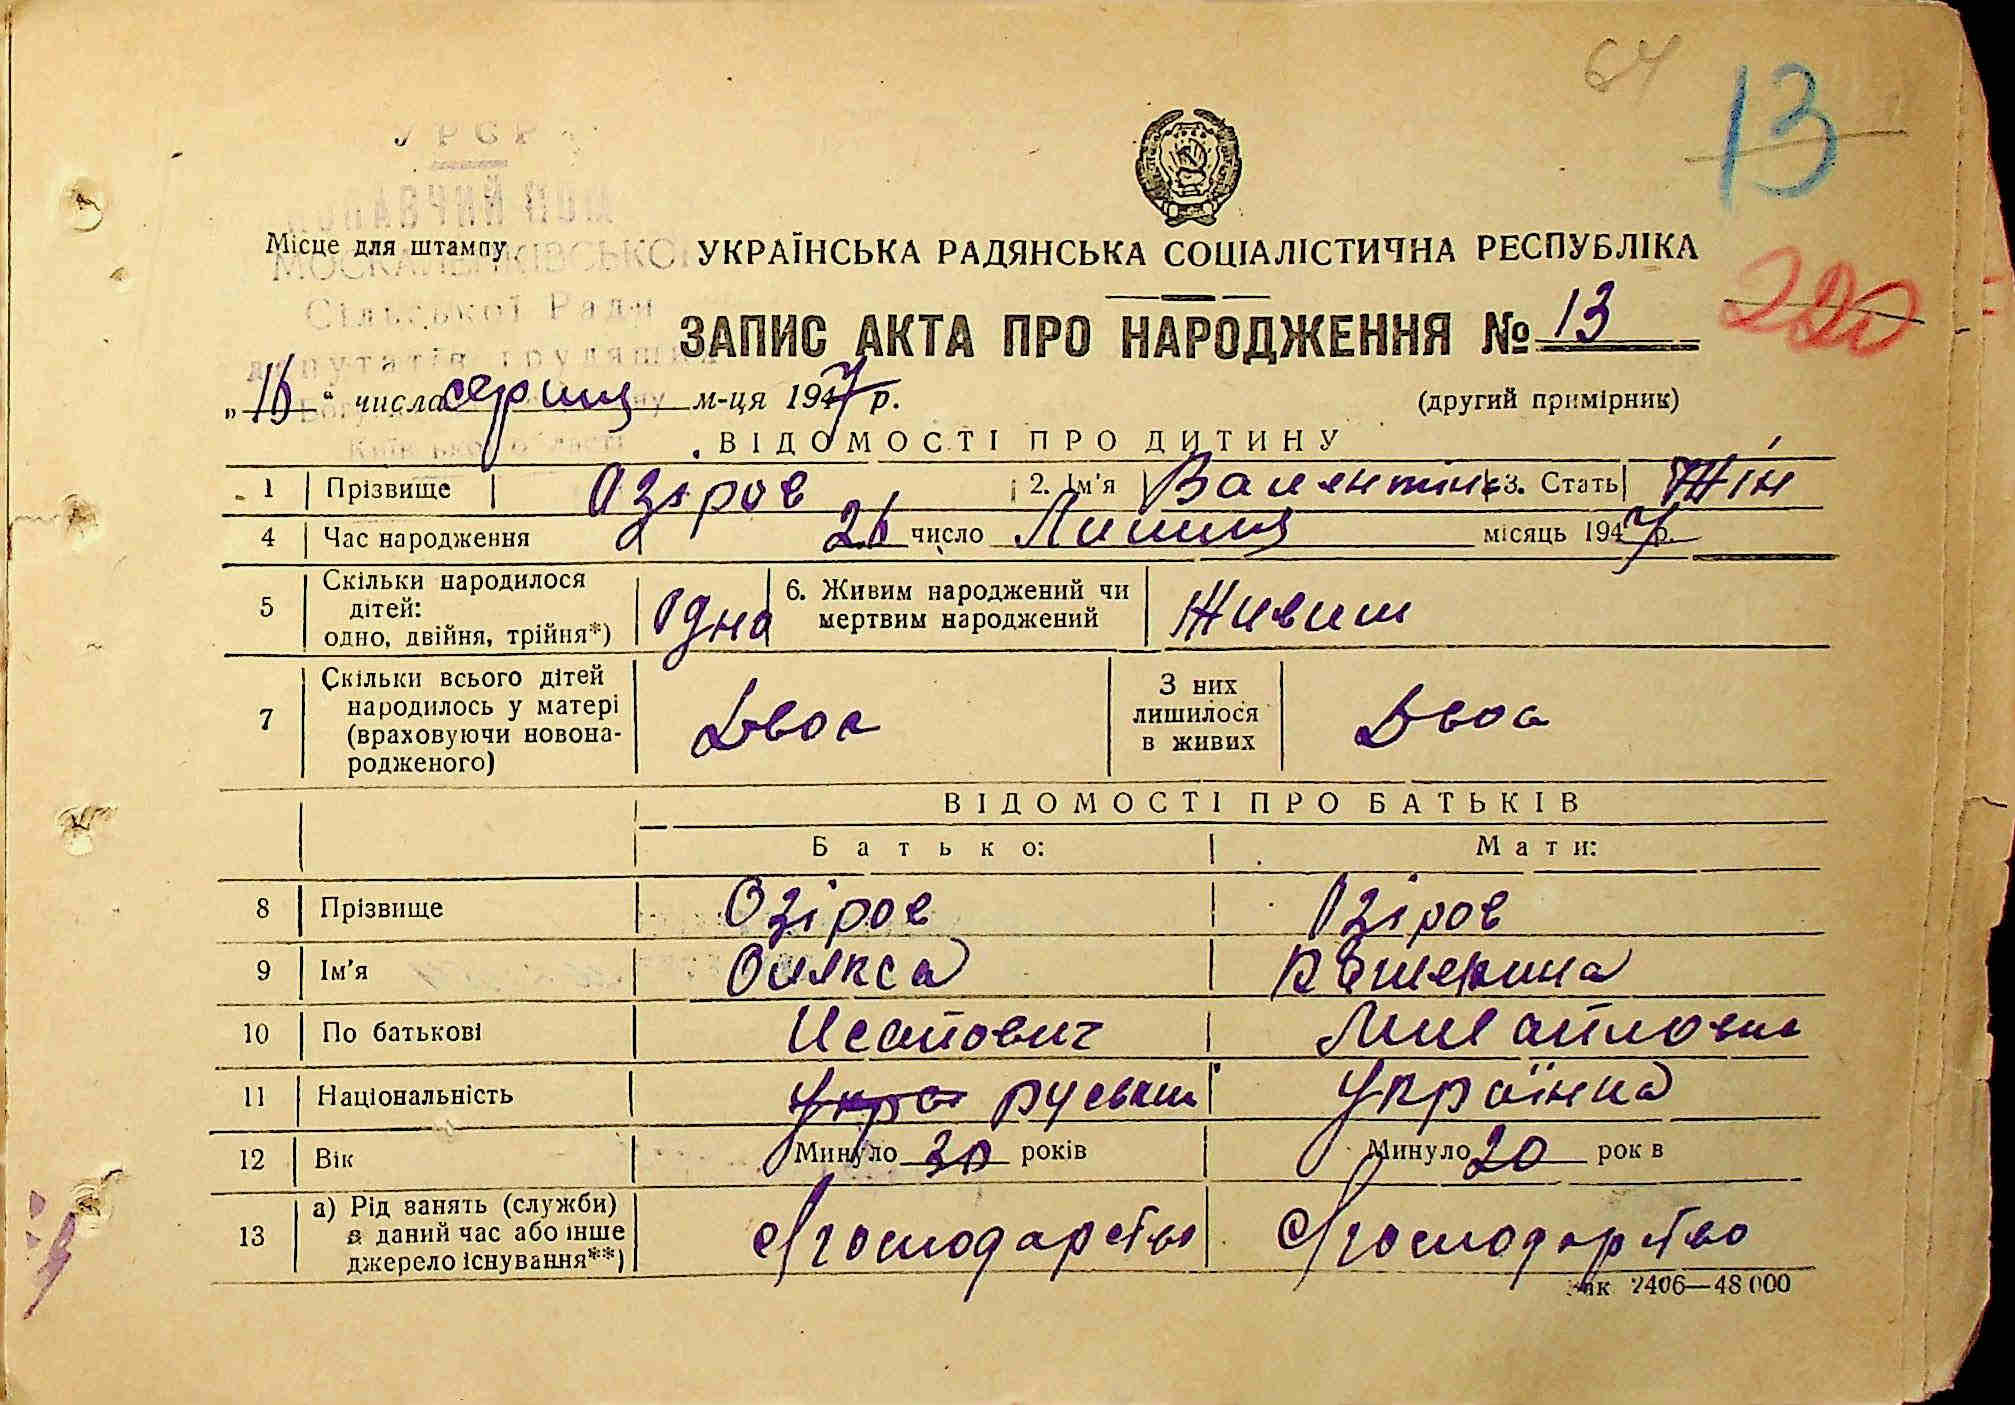 64
13
УРСР
Місце для штампу
МОСКАЛЕНКІВСЬКОЇ
УКРАЇНСЬКА РАДЯНСЬКА СОЦІАЛІСТИЧНА РЕСПУБЛІКА
220
Сільської Ради
ЗАПИС АКТА ПРО НАРОДЖЕННЯ № 13
депутатів трудящих
„16“ числа серпня м-ця 1947 р.
(другий примірник)
Київської області
ВІДОМОСТІ ПРО ДИТИНУ
1 Прізвище Озіров 2. Ім'я Валентіна 3. Стать Жін
4 Час народження 26 число Липня місяць 1947 р.
5 Скільки народилося дітей: одно, двійня, трійня*) Одна 6. Живим народжений чи мертвим народжений Живим
7 Скільки всього дітей народилось у матері (враховуючи новонародженого) Двоє З них лишилося в живих Двоє
ВІДОМОСТІ ПРО БАТЬКІВ
Батько: Мати:
8 Прізвище Озіров Озіров
9 Ім'я Олекса Катерина
10 По батькові Исайович Михайловна
11 Національність Укра руський Українка
12 Вік Минуло 30 років Минуло 20 років
13 а) Рід занять (служби) в даний час або інше джерело існування**) с/господарство с/господарство
Зак 2406—48 000